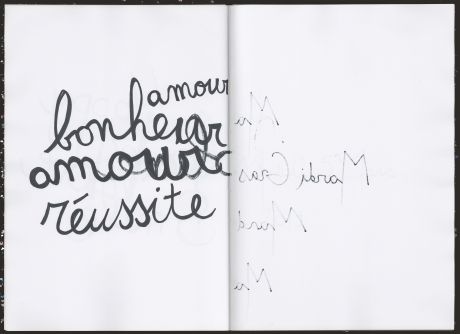 amour
bonheur
amour
réussite
Ma
Mardi Gras
Mard
Ma